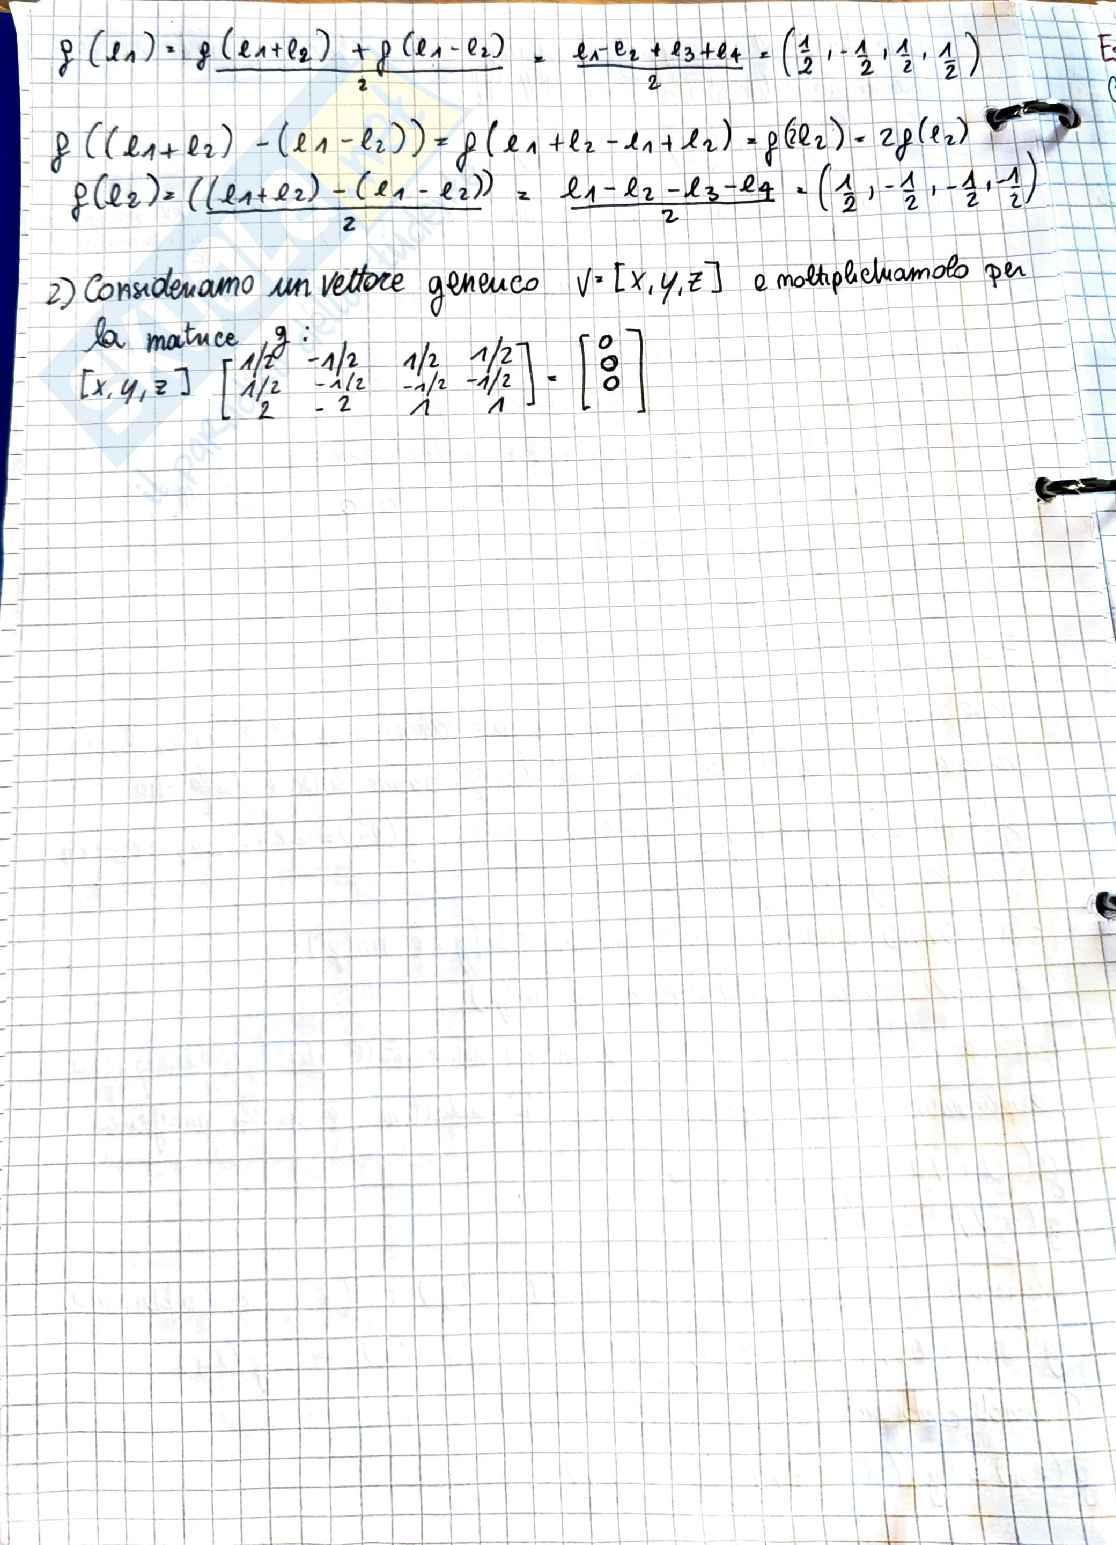 g(e1) = g(e1+e2) + g(e1-e2) / 2 = e1-e2+e3+e4 / 2 = (1/2, -1/2, 1/2, 1/2)
g((e1+e2) - (e1-e2)) = g(e1+e2-e1+e2) = g(2e2) = 2g(e2)
g(e2) = ((e1+e2) - (e1-e2)) / 2 = e1-e2-e3-e4 / 2 = (1/2, -1/2, -1/2, -1/2)
2) Consideriamo un vettore generico v=[x,y,z] e moltiplichiamolo per
la matrice g:
[x,y,z] [1/2 -1/2 1/2 1/2
1/2 -1/2 -1/2 -1/2
2 -2 1 1] = [0
0
0]